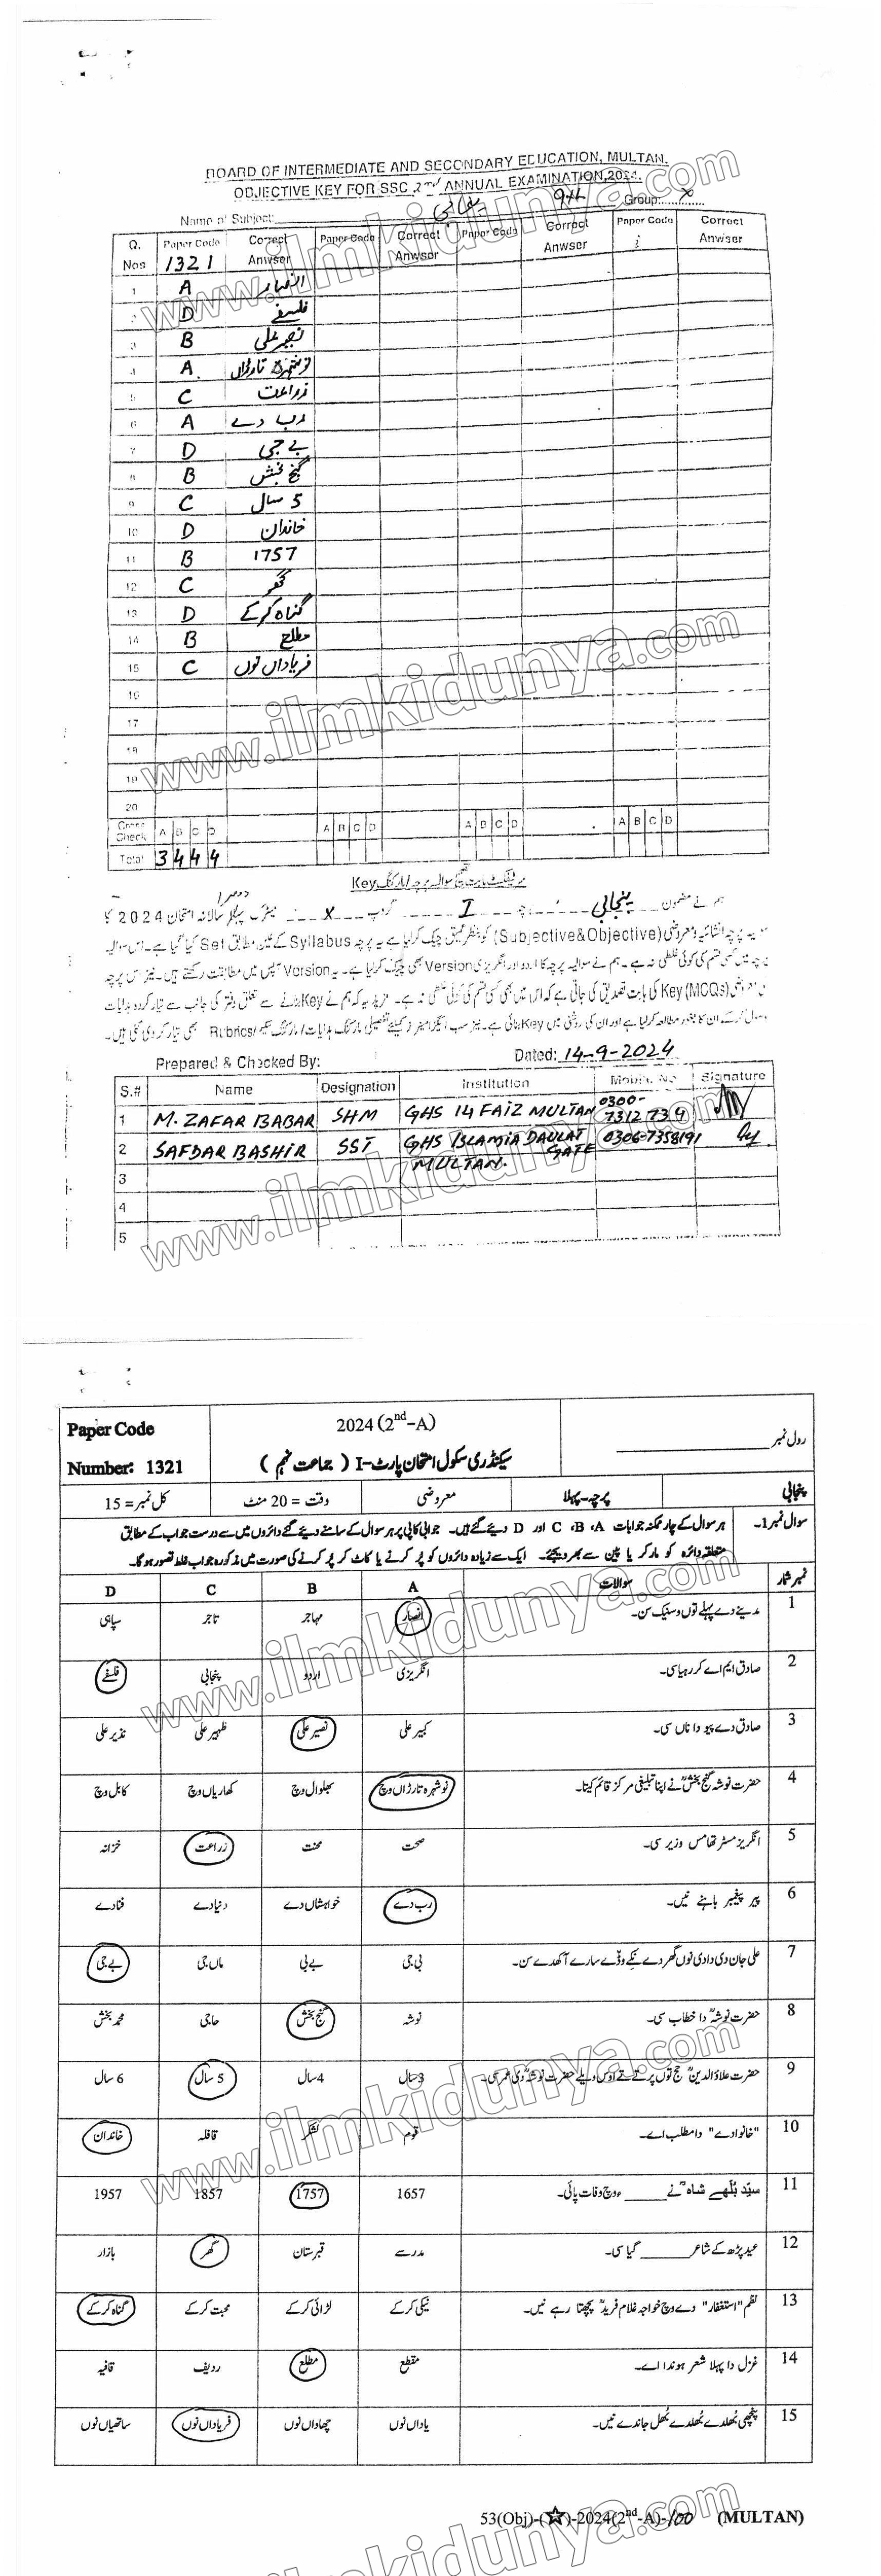 BOARD OF INTERMEDIATE AND SECONDARY EDUCATION, MULTAN.
OBJECTIVE KEY FOR SSC 2nd ANNUAL EXAMINATION, 2024.
Name of Subject: پنجابی 9th Group: X
Q. Nos Paper Code Correct Anwser Paper Code Correct Anwser Paper Code Correct Anwser Paper Code Correct Anwser
1321
1 A انصار
2 D فلسفے
3 B نصیر علی
4 A. نوشہرہ تارڑاں
5 C زراعت
6 A رب دے
7 D بے جی
8 B گنج بخش
9 C 5 سال
10 D خاندان
11 B 1757
12 C گھر
13 D گناہ کر کے
14 B مطلع
15 C فریاداں نوں
16
17
18
19
20
Cross Check A B C D A B C D A B C D A B C D
Total 3 4 4 4
سرٹیفکیٹ بابت تصحیح سوالیہ پرچہ/مارکنگ Key
ہم نے مضمون پنجابی پرچہ I گروپ X میٹرک دوسرا سالانہ امتحان 2024 کا
سوالیہ پرچہ انشائیہ و معروضی (Subjective&Objective) کو بنظر عمیق چیک کر لیا ہے یہ پرچہ Syllabus کے عین مطابق Set کیا گیا ہے۔ اس سوالیہ
پرچہ میں کسی قسم کی کوئی غلطی نہ ہے۔ ہم نے سوالیہ پرچہ کا اردو اور انگریزی Version بھی چیک کر لیا ہے۔ یہ Version آپس میں مطابقت رکھتے ہیں۔ نیز اس پرچہ
کی معروضی Key (MCQs) کی بابت تصدیق کی جاتی ہے کہ اس میں بھی کسی قسم کی کوئی غلطی نہ ہے۔ مزید یہ کہ ہم نے Key بنانے سے متعلق دفتر کی جانب سے تیار کردہ ہدایات
وصول کر کے ان کا بغور مطالعہ کر لیا ہے اور ان کی روشنی میں Key بنائی ہے۔ نیز سب ایگزامینر کیلئے تفصیلی مارکنگ ہدایات/مارکنگ سکیم/Rubrics بھی تیار کر دی گئی ہیں۔
Prepared & Checked By: Dated: 14-9-2024
S.# Name Designation Institution Mobile No Signature
1 M. ZAFAR BABAR SHM GHS 14 FAIZ MULTAN 0300-7312734
2 SAFDAR BASHIR SST GHS ISLAMIA DAULAT GATE MULTAN. 0306-7358191
3
4
5
Paper Code 2024 (2nd-A) رول نمبر
Number: 1321 سیکنڈری سکول امتحان پارٹ-I ( جماعت نہم )
پنجابی پرچہ-پہلا معروضی وقت = 20 منٹ کل نمبر = 15
سوال نمبر 1۔ ہر سوال کے چار ممکنہ جوابات A، B، C اور D دیئے گئے ہیں۔ جوابی کاپی پر ہر سوال کے سامنے دیئے گئے دائروں میں سے درست جواب کے مطابق
متعلقہ دائرہ کو مارکر یا پین سے بھر دیجئے۔ ایک سے زیادہ دائروں کو پُر کرنے یا کاٹ کر پُر کرنے کی صورت میں مذکورہ جواب غلط تصور ہوگا۔
نمبر شمار سوالات A B C D
1 مدینے دے پہلے توں وسنیک سن۔ انصار مہاجر تاجر سپاہی
2 صادق ایم اے کر رہیا سی۔ انگریزی اردو پنجابی فلسفے
3 صادق دے پیو دا ناں سی۔ کبیر علی نصیر علی ظہیر علی نذیر علی
4 حضرت نوشہ گنج بخشؒ نے اپنا تبلیغی مرکز قائم کیتا۔ نوشہرہ تارڑاں وچ بھلوال وچ کھاریاں وچ کابل وچ
5 انگریز مسٹر تھامس وزیر سی۔ صحت محنت زراعت خزانہ
6 پیر پیغمبر باہنے نیں۔ رب دے خواہشاں دے دنیا دے فنا دے
7 علی جان دی دادی نوں گھر دے نکے وڈے سارے آکھدے سن۔ بی جی بے بی ماں جی بے جی
8 حضرت نوشہؒ دا خطاب سی۔ نوشہ گنج بخش حاجی محمد بخش
9 حضرت علاؤ الدینؒ حج توں پرتے تے اوس ویلے حضرت نوشہؒ دی عمر سی۔ 3 سال 4 سال 5 سال 6 سال
10 "خانوادے" دا مطلب اے۔ قوم لشکر قافلہ خاندان
11 سیّد بُلّھے شاہؒ نے ______ء وچ وفات پائی۔ 1657 1757 1857 1957
12 عید پڑھ کے شاعر ______ گیا سی۔ مدرسے قبرستان گھر بازار
13 نظم "استغفار" دے وچ خواجہ غلام فریدؒ پچھتا رہے نیں۔ نیکی کر کے لڑائی کر کے محبت کر کے گناہ کر کے
14 غزل دا پہلا شعر ہوندا اے۔ مقطع مطلع ردیف قافیہ
15 پنچھی بُھلدے بُھلدے بُھل جاندے نیں۔ یاداں نوں چھاواں نوں فریاداں نوں ساتھیاں نوں
53(Obj)-(☆)-2024(2nd-A)-100 (MULTAN)
www.ilmkidunya.com
www.ilmkidunya.com
www.ilmkidunya.com
www.ilmkidunya.com
www.ilmkidunya.com
www.ilmkidunya.com